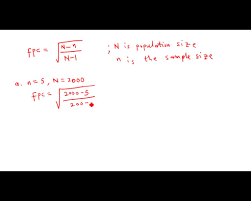 fpc = √((N-n)/(N-1)) ; N is population size
n is the sample size
a. n = 5, N = 2000
fpc = √((2000-5)/(200-